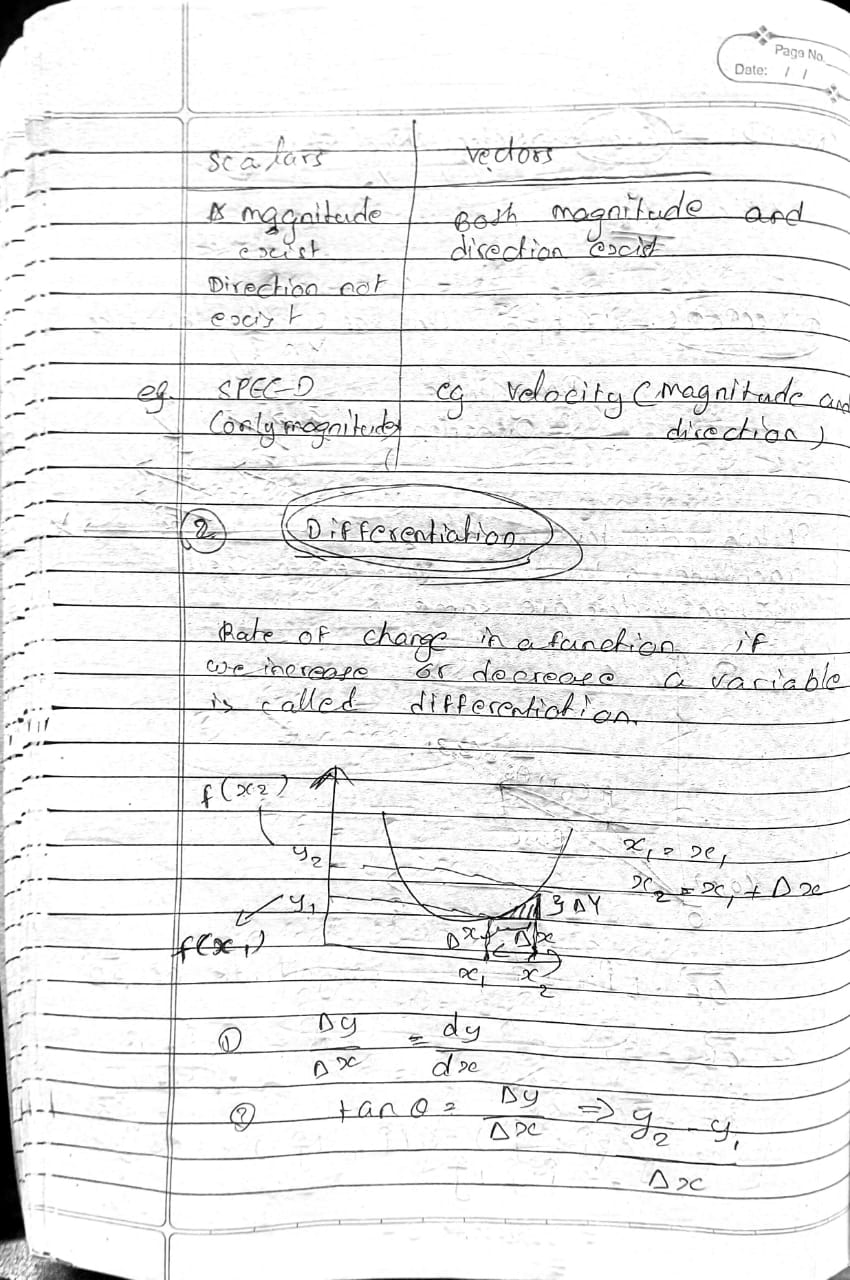 Page No.
Date: / /
scalars
vectors
magnitude
exist
Direction not
exist
Both magnitude and
direction excist
eg. SPEED
(only magnitude)
eg velocity (magnitude and
direction)
②
Differentiation
Rate of change in a function if
we increase or decrease a variable
is called differentiation.
f(x2)
y2
y1
f(x1)
x1 = x1
x2 = x1 + Δx
ΔY
Δx
x1
x2
① Δy/Δx = dy/dx
② tan θ = Δy/Δx ⇒ y2 - y1/Δx